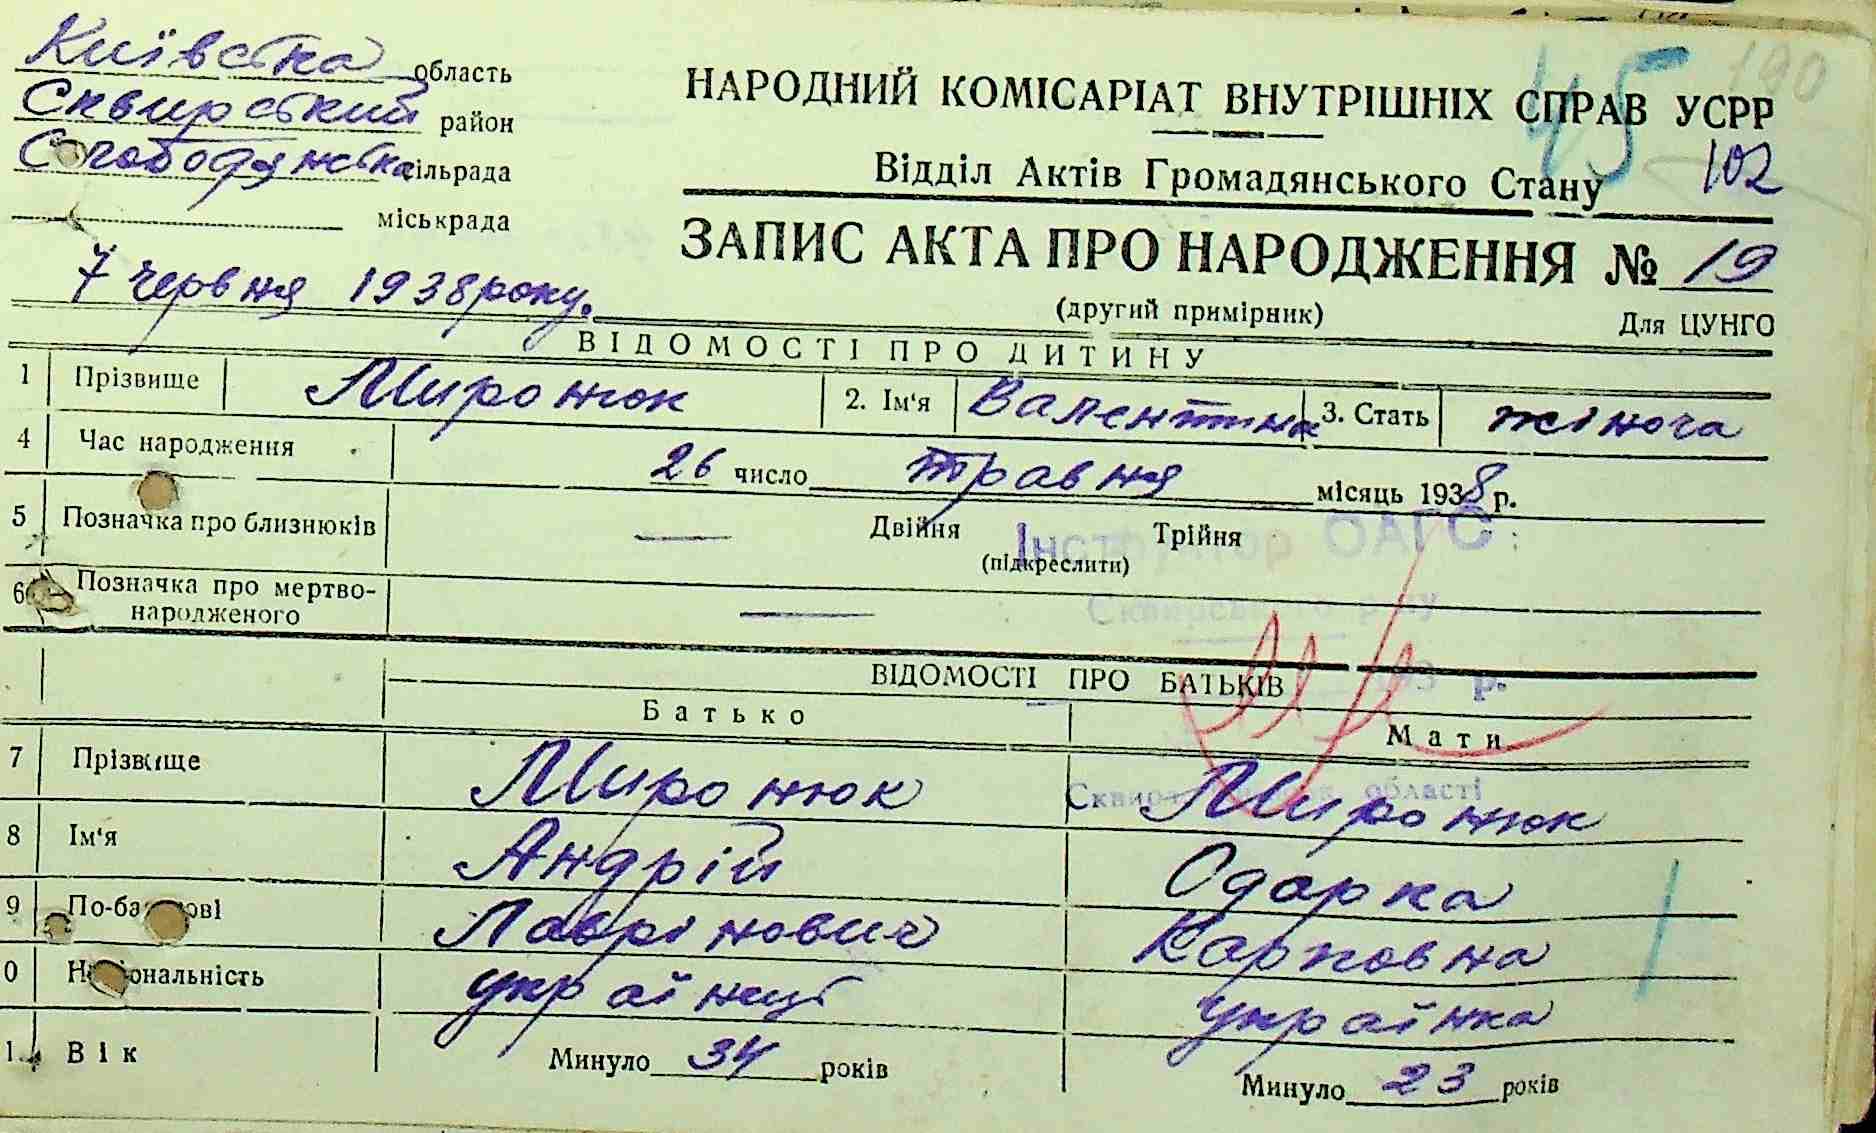 Київська область
Сквирський район
Слободянська сільрада
міськрада
7 червня 1938 року.
190
45
НАРОДНИЙ КОМІСАРІАТ ВНУТРІШНІХ СПРАВ УСРР
Відділ Актів Громадянського Стану
102
ЗАПИС АКТА ПРО НАРОДЖЕННЯ № 19
(другий примірник)
Для ЦУНГО
ВІДОМОСТІ ПРО ДИТИНУ
1 Прізвище Миронюк 2. Ім'я Валентина 3. Стать жіноча
4 Час народження 26 число травня місяць 1938 р.
5 Позначка про близнюків — Двійня Трійня
(підкреслити)
Інспектор ОАГС
6 Позначка про мертво-
народженого —
Сквирського р-ну
ВІДОМОСТІ ПРО БАТЬКІВ
193 р.
Батько Мати
7 Прізвище Миронюк Миронюк
області
8 Ім'я Андрій Одарка
9 По-батькові Лаврінович Карповна
0 Національність українець українка
1 Вік Минуло 34 років Минуло 23 років